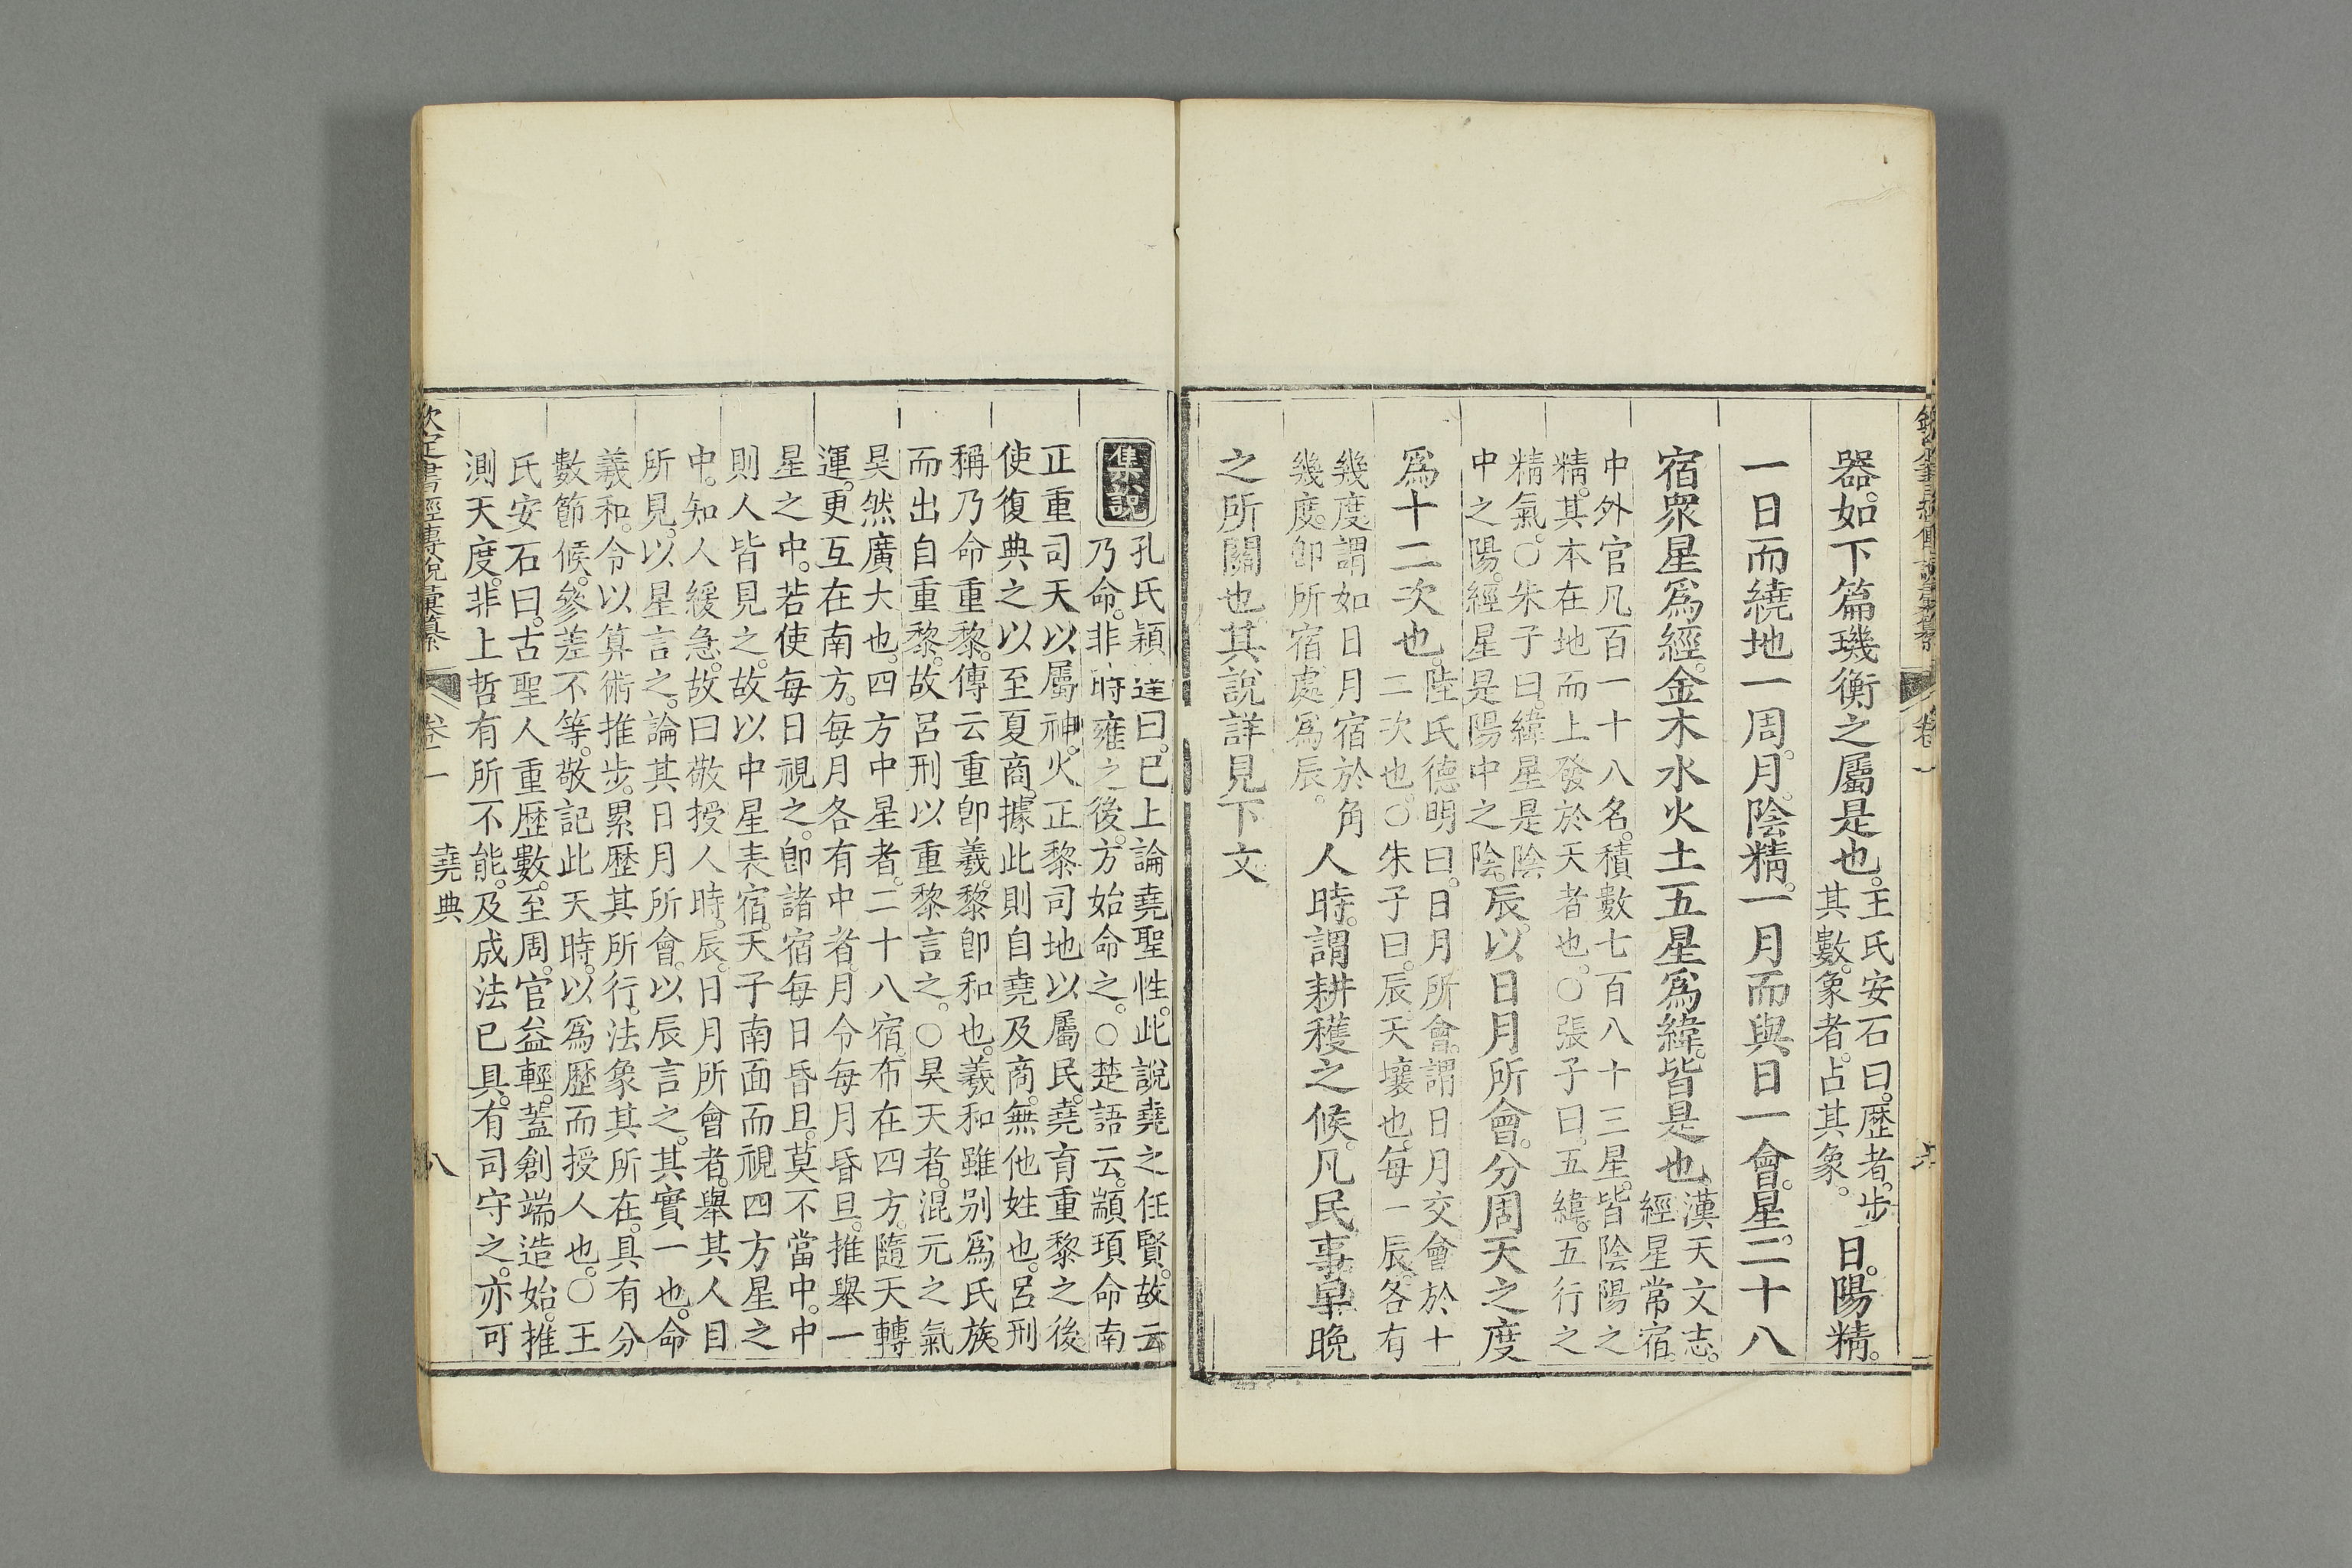 器。如下篇璣衡之屬是也。王氏安石曰。歷者。步其數。象者。占其象。日。陽精。
一日而繞地一周。月。陰精。一月而與日一會。星。二十八
宿衆星爲經。金木水火土五星爲緯。皆是也。漢天文志。經星常宿。
中外官凡百一十八名。積數七百八十三星。皆陰陽之
精。其本在地而上發於天者也。○張子曰。五緯。五行之
精氣。○朱子曰。緯星是陰
中之陽。經星是陽中之陰。辰。以日月所會。分周天之度
爲十二次也。陸氏德明曰。日月所會。謂日月交會於十
二次也。○朱子曰。辰。天壤也。每一辰。各有
幾度。謂如日月宿於角
幾度。卽所宿處爲辰。人時。謂耕穫之候。凡民事早晚
之所關也。其說詳見下文
集說
孔氏穎達曰。已上論堯聖性。此說堯之任賢。故云
乃命。非時雍之後。方始命之。○楚語云。顓頊命南
正重司天以屬神。火正黎司地以屬民。堯育重黎之後。
使復典之以至夏商。據此則自堯及商。無他姓也。呂刑
稱乃命重黎。傳云重卽羲。黎卽和也。羲和雖別爲氏族。
而出自重黎。故呂刑以重黎言之。○昊天者。混元之氣
昊然廣大也。四方中星者。二十八宿。布在四方。隨天轉
運。更互在南方。每月各有中者。月令每月昏旦。推舉一
星之中。若使每日視之。卽諸宿每日昏旦。莫不當中。中
則人皆見之。故以中星表宿。天子南面而視四方星之
中。知人緩急。故曰敬授人時。辰。日月所會者。舉其人目
所見。以星言之。論其日月所會。以辰言之。其實一也。命
羲和。令以算術推步。累歷其所行。法象其所在。具有分
數節候。參差不等。敬記此天時。以爲歷而授人也。○王
氏安石曰。古聖人重歷數。至周。官益輕。蓋創端造始。推
測天度。非上哲有所不能。及成法已具。有司守之。亦可
欽定書經傳說彙纂
卷一
堯典
八